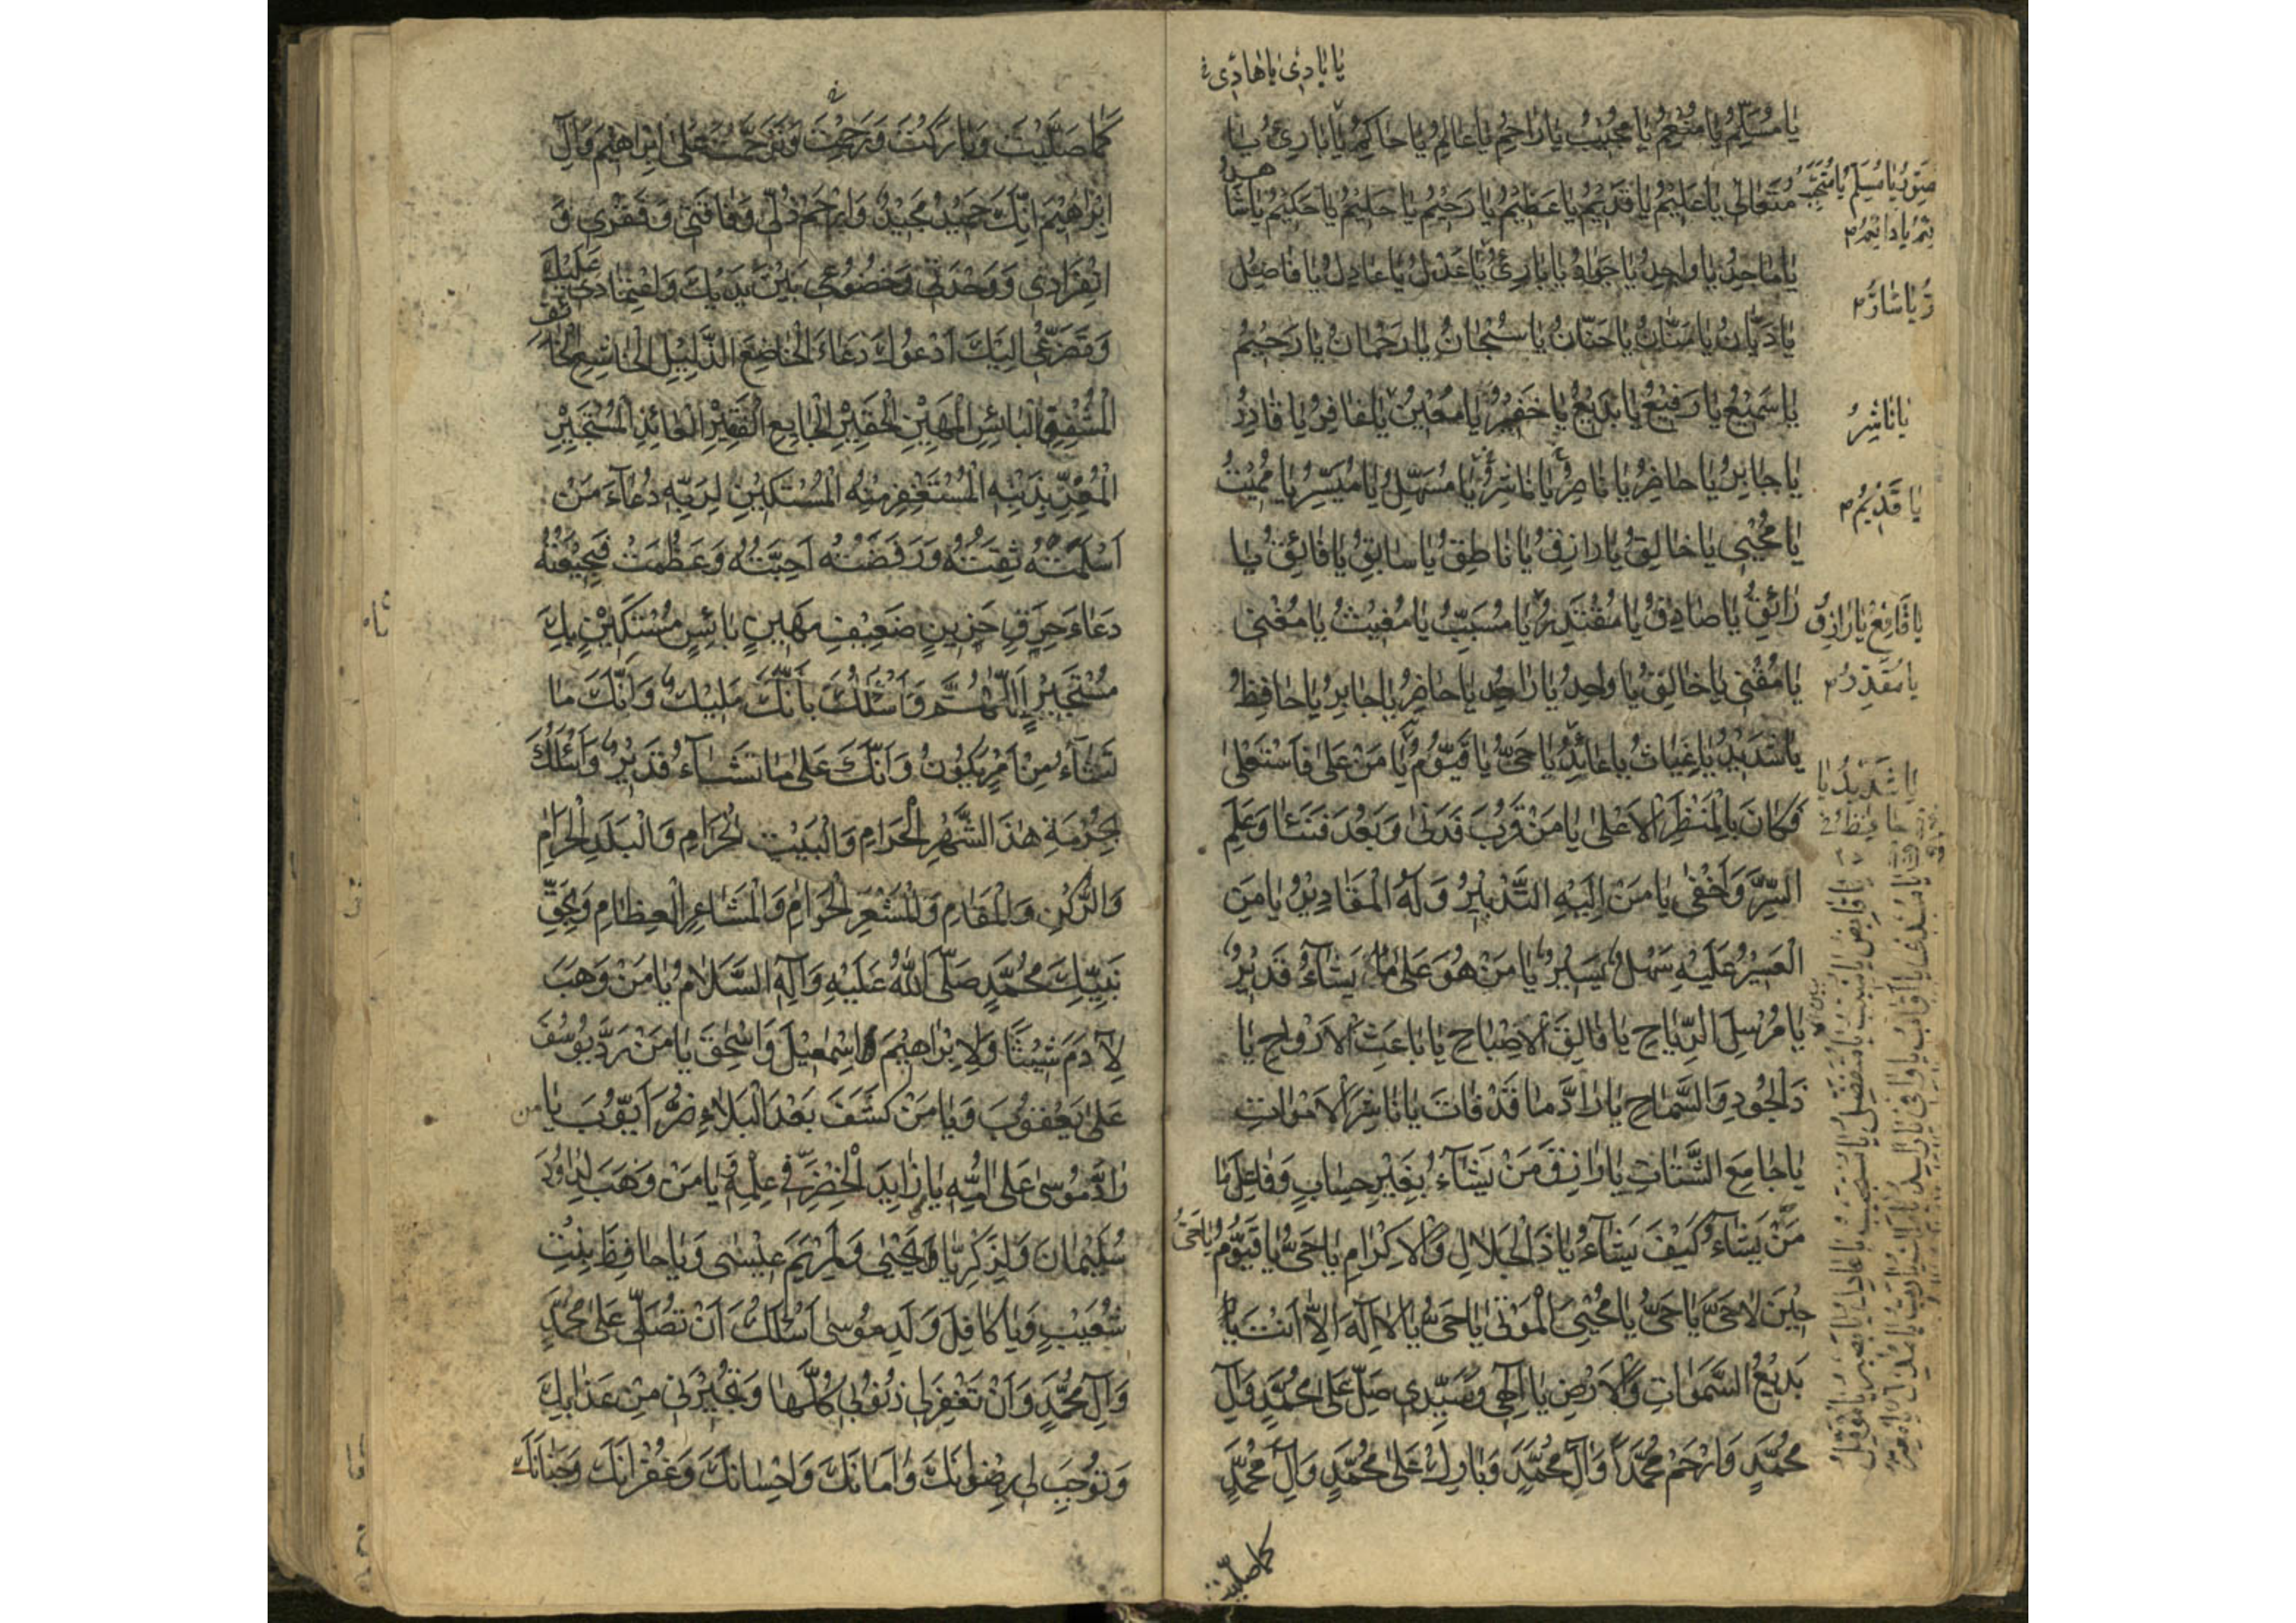 يا بادئ يا هادي
يا مُسَلِّمُ يا مُنْعِمُ يا مُجيبُ يا راحِمُ يا عالِمُ يا حاكِمُ يا بارِئُ يا
مُتَعالي يا عَليمُ يا قَديمُ يا عَظيمُ يا رَحيمُ يا حَليمُ يا حَكيمُ يا شاهدُ
يا ماجِدُ يا واحِدُ يا جَوادُ يا بارِئُ يا عَدْلُ يا عادِلُ يا فاصِلُ
يا دَيّانُ يا مَنّانُ يا حَنّانُ يا سُبْحانُ يا رَحْمانُ يا رَحيمُ
يا سَميعُ يا رَفيعُ يا بَديعُ يا خَفيرُ يا مُعينُ يا غافِرُ يا قادِرُ
يا جابِرُ يا حاضِرُ يا ناصِرُ يا ناشِرُ يا مُسَهِّلُ يا مُيَسِّرُ يا مُميتُ
يا مُحْيي يا خالِقُ يا رازِقُ يا ناطِقُ يا سابِقُ يا فائِقُ يا
رائِقُ يا صادِقُ يا مُقْتَدِرُ يا مُسَبِّبُ يا مُغيثُ يا مُغْني
يا مُقْني يا خالِقُ يا واحِدُ يا راصِدُ يا حاضِرُ يا جابِرُ يا حافِظُ
يا شَديدُ يا غِياثُ يا عائِدُ يا حَيُّ يا قَيّومُ يا مَنْ عَلى فَاسْتَعْلى
فَكانَ بِالْمَنْظَرِ الْاَعْلى يا مَنْ قَرُبَ فَدَنى وَبَعُدَ فَنَئا وَعَلِمَ
السِّرَّ وَاَخْفى يا مَنْ اِلَيْهِ التَّدْبيرُ وَلَهُ الْمَقاديرُ يا مَنِ
الْعَسيرُ عَلَيْهِ سَهْلٌ يَسيرٌ يا مَنْ هُوَ عَلى ما يَشآءُ قَديرٌ
يا مُرْسِلَ الرِّياحِ يا فالِقَ الْاَصْباحِ يا باعِثَ الْاَرْواحِ يا
ذَا الْجُودِ وَالسَّماحِ يا رادَّ ما قَدْ فاتَ يا ناشِرَ الْاَمْواتِ
يا جامِعَ الشَّتاتِ يا رازِقَ مَنْ يَشآءُ بِغَيْرِ حِسابٍ وَفاعِلَ ما
مَنْ يَشآءُ كَيْفَ يَشآءُ يا ذَا الْجَلالِ وَالْاِكْرامِ يا حَيُّ يا قَيّومُ يا حَيُّ
حينَ لا حَيَّ يا حَيُّ يا مُحْيِيَ الْمَوْتى يا حَيُّ يا لا اِلهَ اِلاّ اَنْتَ يا
بَديعُ السَّمواتِ وَالْاَرْضِ يا اِلهي وَسَيِّدي صَلِّ عَلى مُحَمَّدٍ وَآلِ
مُحَمَّدٍ وَارْحَمْ مُحَمَّداً وَآلَ مُحَمَّدٍ وَبارِكْ عَلى مُحَمَّدٍ وَآلِ مُحَمَّدٍ
كما صليت
يا مُسَلِّمُ
وِتْرُ يا دائِمُ
يا ناشِرُ
يا قَديمُ
يا رازِقُ
يا مُقْتَدِرُ
يا شَديدُ يا
حافِظُ
كَما صَلَّيْتَ وَبارَكْتَ وَرَحِمْتَ وَتَرَحَّمْتَ عَلى اِبْراهيمَ وَآلِ
اِبْراهيمَ اِنَّكَ حَميدٌ مَجيدٌ وَارْحَمْ ذُلّي وَفاقَتي وَفَقْري وَ
انْفِرادي وَوَحْدَتي وَخُضُوعي بَيْنَ يَدَيْكَ وَاعْتِمادي عَلَيْكَ
وَتَضَرُّعي اِلَيْكَ اَدْعُوكَ دُعاءَ الْخاضِعِ الذَّليلِ الْخاشِعِ الْخائف
الْمُشْفِقِ الْبائِسِ الْمَهينِ الْحَقيرِ الْجايِعِ الْفَقيرِ الْعائِذِ الْمُسْتَجيرِ
الْمُقِرِّ بِذَنْبِهِ الْمُسْتَغْفِرِ مِنْهُ الْمُسْتَكينِ لِرَبِّهِ دُعآءَ مَنْ
اَسْلَمَتْهُ ثِقَتُهُ وَرَفَضَتْهُ اَحِبَّتُهُ وَعَظُمَتْ فَجيعَتُهُ
دُعاءَ حَرِقٍ حَزينٍ ضَعيفٍ مَهينٍ بائِسٍ مُسْتَكينٍ بِكَ
مُسْتَجيرٍ اَللّهُمَّ وَاَسْئَلُكَ بِاَنَّكَ مَليكٌ وَاَنَّكَ ما
تَشآءُ مِنْ اَمْرٍ يَكُونُ وَاَنَّكَ عَلى ما تَشآءُ قَديرٌ وَاَسْئَلُكَ
بِحُرْمَةِ هذَا الشَّهْرِ الْحَرامِ وَالْبَيْتِ الْحَرامِ وَالْبَلَدِ الْحَرامِ
وَالرُّكْنِ وَالْمَقامِ وَالْمَشْعَرِ الْحَرامِ وَالْمَشاعِرِ الْعِظامِ وَبِحَقِّ
نَبِيِّكَ مُحَمَّدٍ صَلَّى اللهُ عَلَيْهِ وَآلِهِ السَّلامُ يا مَنْ وَهَبَ
لِآدَمَ شَيْثًا وَلِاِبْراهيمَ اِسْمعيلَ وَاِسْحقَ يا مَنْ رَدَّ يُوسُفَ
عَلى يَعْقُوبَ وَيا مَنْ كَشَفَ بَعْدَ الْبَلاءِ ضُرَّ اَيُّوبَ يا من
رادَّ مُوسى عَلى اُمِّهِ يا زايِدَ الْخِضْرِ في عِلْمِهِ وَيا مَنْ وَهَبَ لِداوُدَ
سُلَيْمانَ وَلِزَكَرِيّا يَحْيى وَلِمَرْيَمَ عيسى وَيا حافِظَ بِنْتِ
شُعَيْبٍ وَيا كافِلَ وَلَدِ مُوسى اَسْئَلُكَ اَنْ تُصَلِّيَ عَلى مُحَمَّدٍ
وَآلِ مُحَمَّدٍ وَاَنْ تَغْفِرَ لي ذُنُوبي كُلَّها وَتُجيرَني مِنْ عَذابِكَ
وَتُوجِبَ لي رِضْوانَكَ وَاَمانَكَ وَاِحْسانَكَ وَغُفْرانَكَ وَجِنانَكَ